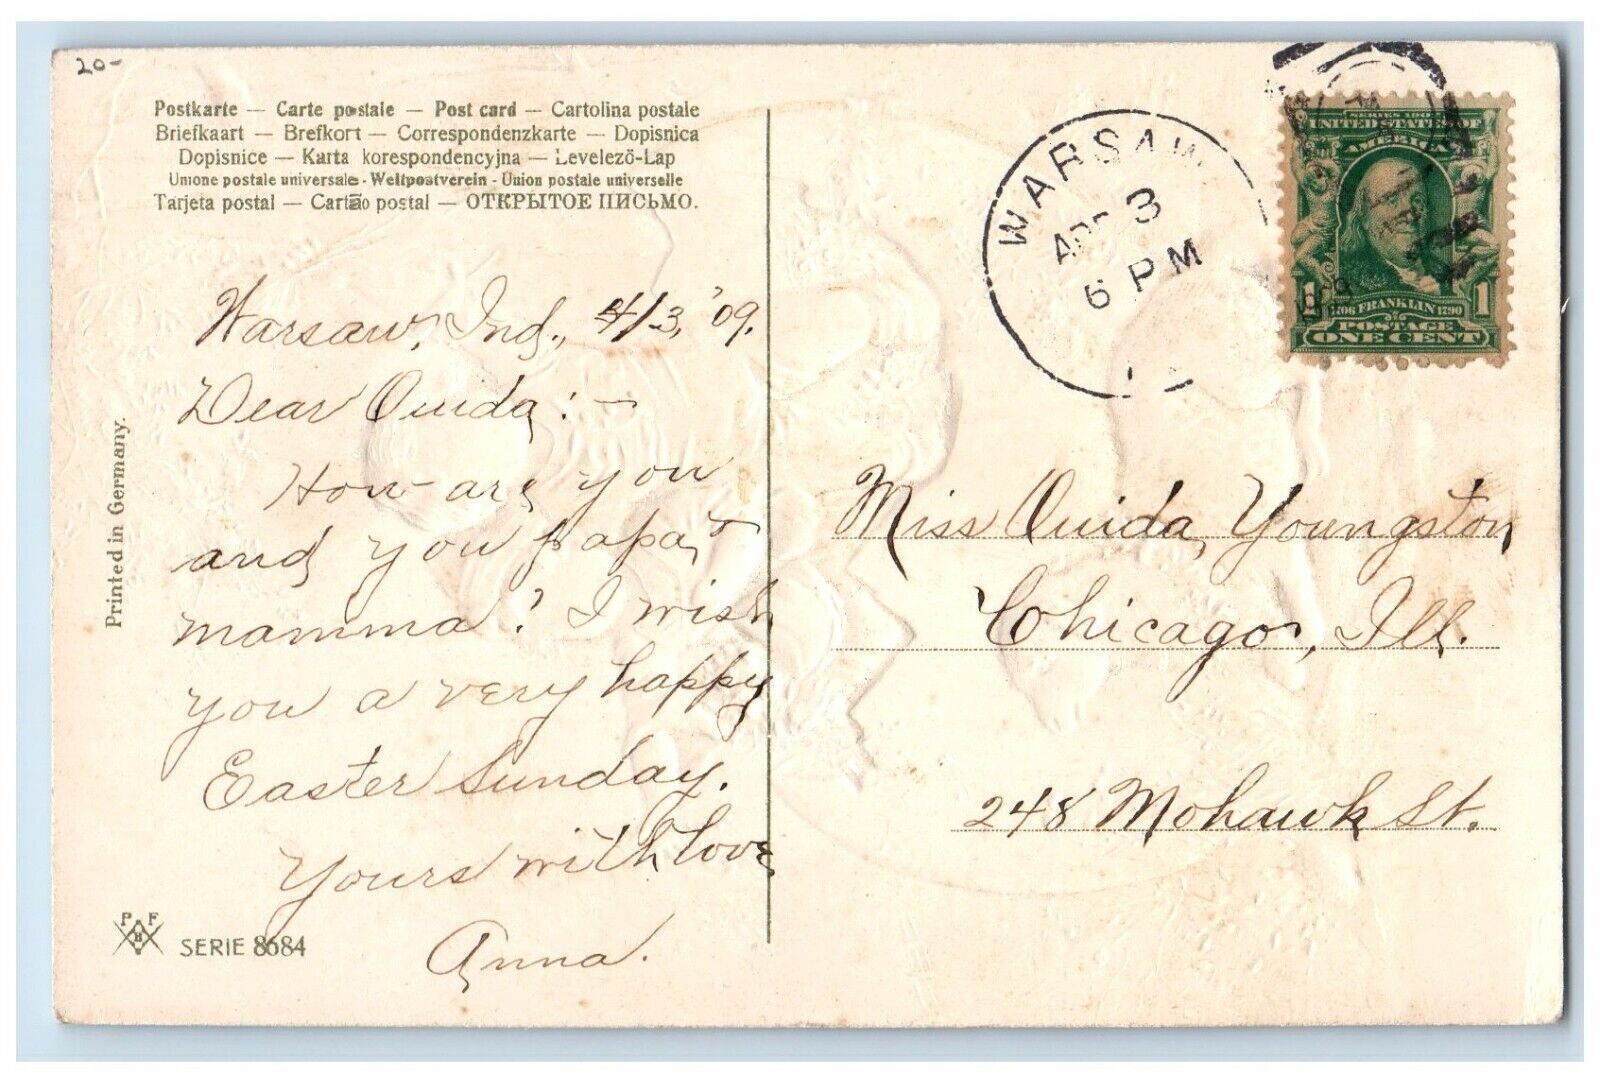 20-
Postkarte — Carte postale — Post card — Cartolina postale
Briefkaart — Brefkort — Correspondenzkarte — Dopisnica
Dopisnice — Karta korespondencyjna — Levelező-Lap
Unione postale universale - Weltpostverein - Union postale universelle
Tarjeta postal — Cartão postal — ОТКРЫТОЕ ПИСЬМО.
Warsaw, Ind., 4/3, '09.
Dear Ouida :-
How are you
and you papa, +
mamma? I wish
you a very happy
Easter Sunday.
Yours with love
Anna.
Printed in Germany.
P F
B
SERIE 8684
WARSAW
APR 3
6 PM
SERIES 1902
UNITED STATES OF
AMERICA
1 1
1706 FRANKLIN 1790
POSTAGE
ONE CENT
Miss Ouida Youngston
Chicago, Ill.
248 Mohawk St.